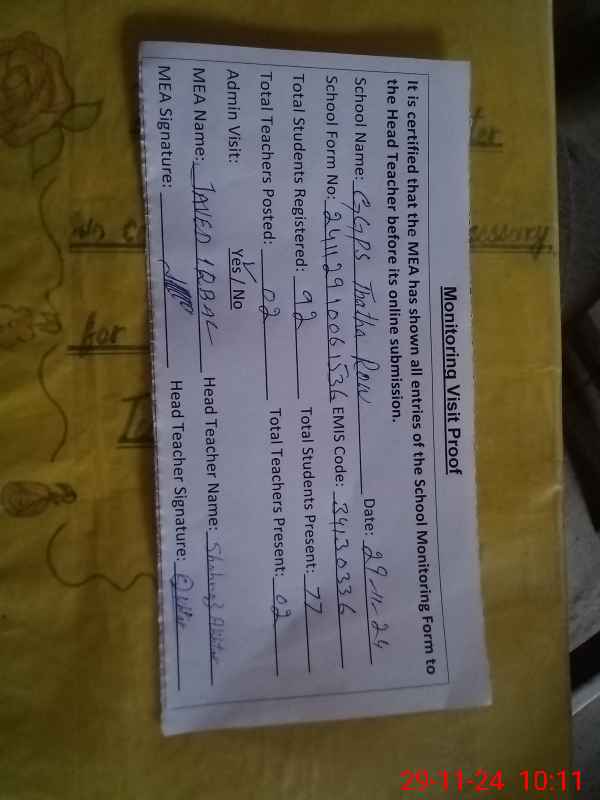 Monitoring Visit Proof
It is certified that the MEA has shown all entries of the School Monitoring Form to
the Head Teacher before its online submission.
School Name: GGPS Thatha Row Date: 29-11-24
School Form No: EMIS Code: 34130336
Total Students Registered: 92 Total Students Present: 77
Total Teachers Posted: 02 Total Teachers Present: 02
Admin Visit: Yes / No
MEA Name: JAVED IQBAL Head Teacher Name: Shahnaz Akhtar
MEA Signature: Head Teacher Signature:
for
29-11-24 10:11